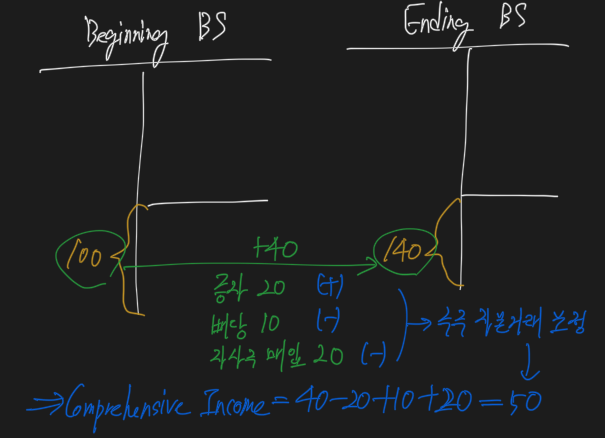 Beginning BS
Ending BS
100
+40
140
증자 20 (+)
배당 10 (-)
자사주 매입 20 (-)
→ 주주 자본거래 조정
⇒ Comprehensive Income = 40-20+10+20 = 50